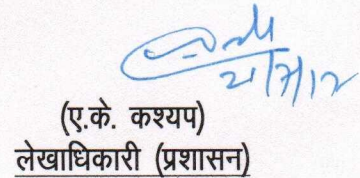 2/7/12
(ए.के. कश्यप)
लेखाधिकारी (प्रशासन)